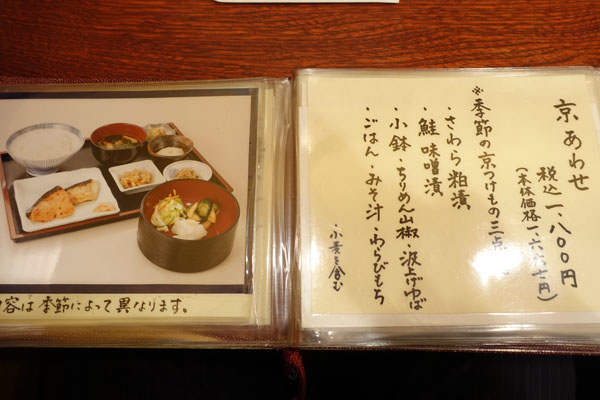 京あわせ
税込一、八〇〇円
(本体価格一、六六七円)
※季節の京つけもの三点
・さわら粕漬
・鮭味噌漬
・小鉢・ちりめん山椒・汲上げゆば
・ごはん・みそ汁・わらびもち
小麦を含む
容は季節によって異なります。